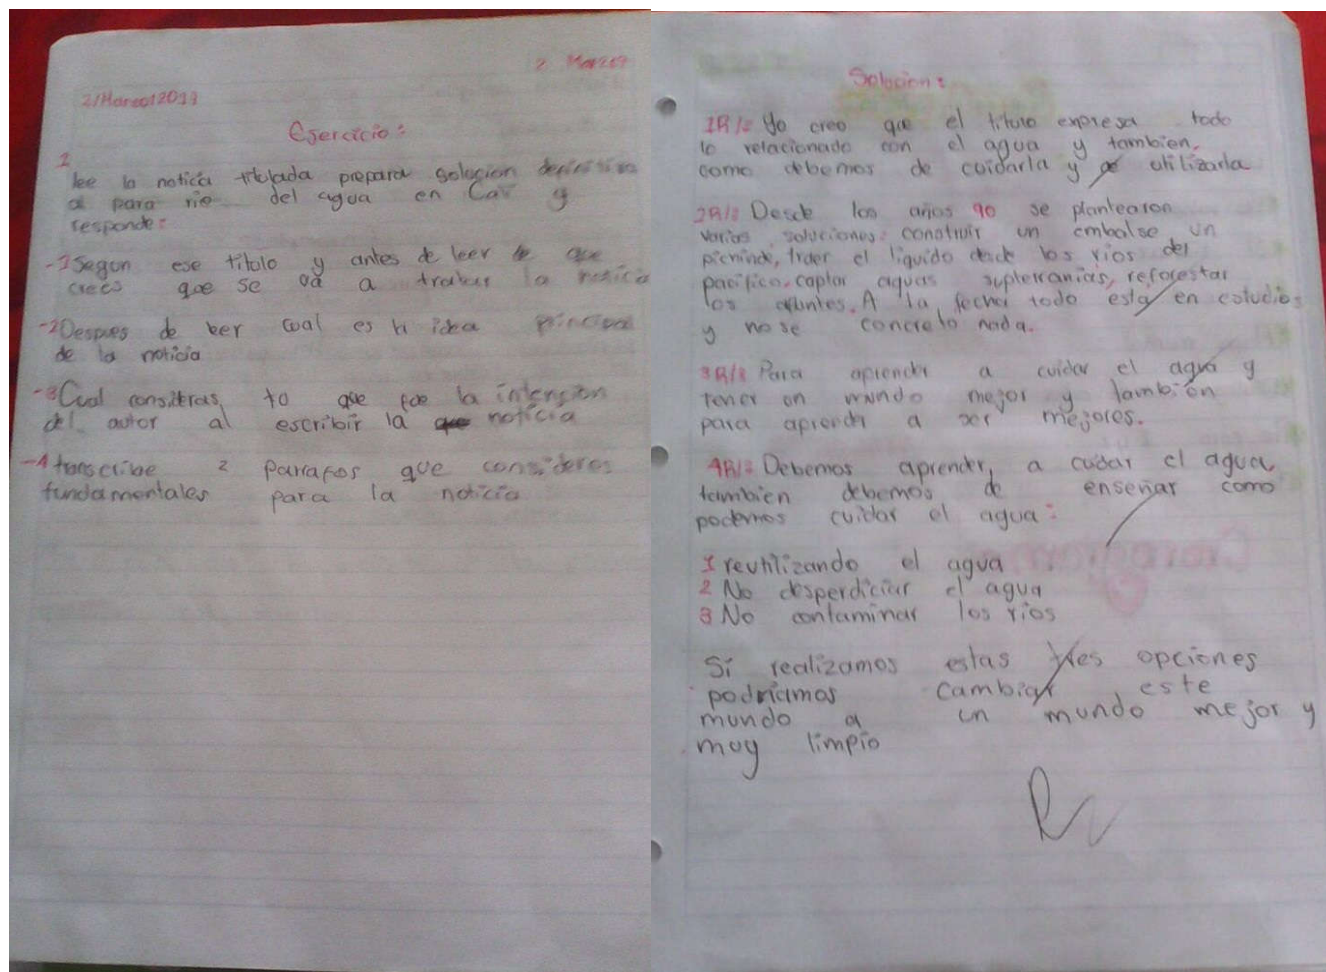 2 Marzo
2/Marzo/2019
Ejercicio:
1
lee la noticia titulada prepara solucion definitiva
al para rie del agua en Cali y
responde:
-1 Segun ese titulo y antes de leer de que
crees que se va a tratar la noticia
-2 Despues de leer cual es la idea principal
de la noticia
-3 Cual consideras tu que fue la intencion
del autor al escribir la noticia
-4 transcribe 2 parrafos que consideres
fundamentales para la noticia
Solucion:
1R/: Yo creo que el titulo expresa todo
lo relacionado con el agua y tambien,
como debemos de cuidarla y utilizarla
2R/: Desde los años 90 se plantearon
varias soluciones: construir un embalse un
pichinde, traer el liquido desde los rios del
pacifico, captar aguas supterranias, reforestar
los afuntes. A la fecha todo esta en estudios
y no se concreto nada.
3R/: Para aprender a cuidar el agua y
tener un mundo mejor y también
para aprender a ser mejores.
4R/: Debemos aprender, a cuidar el agua,
tambien debemos de enseñar como
podemos cuidar el agua:
1 reutilizando el agua
2 No desperdiciar el agua
3 No contaminar los rios
Si realizamos estas tres opciones
podriamos cambiar este
mundo a un mundo mejor y
muy limpio